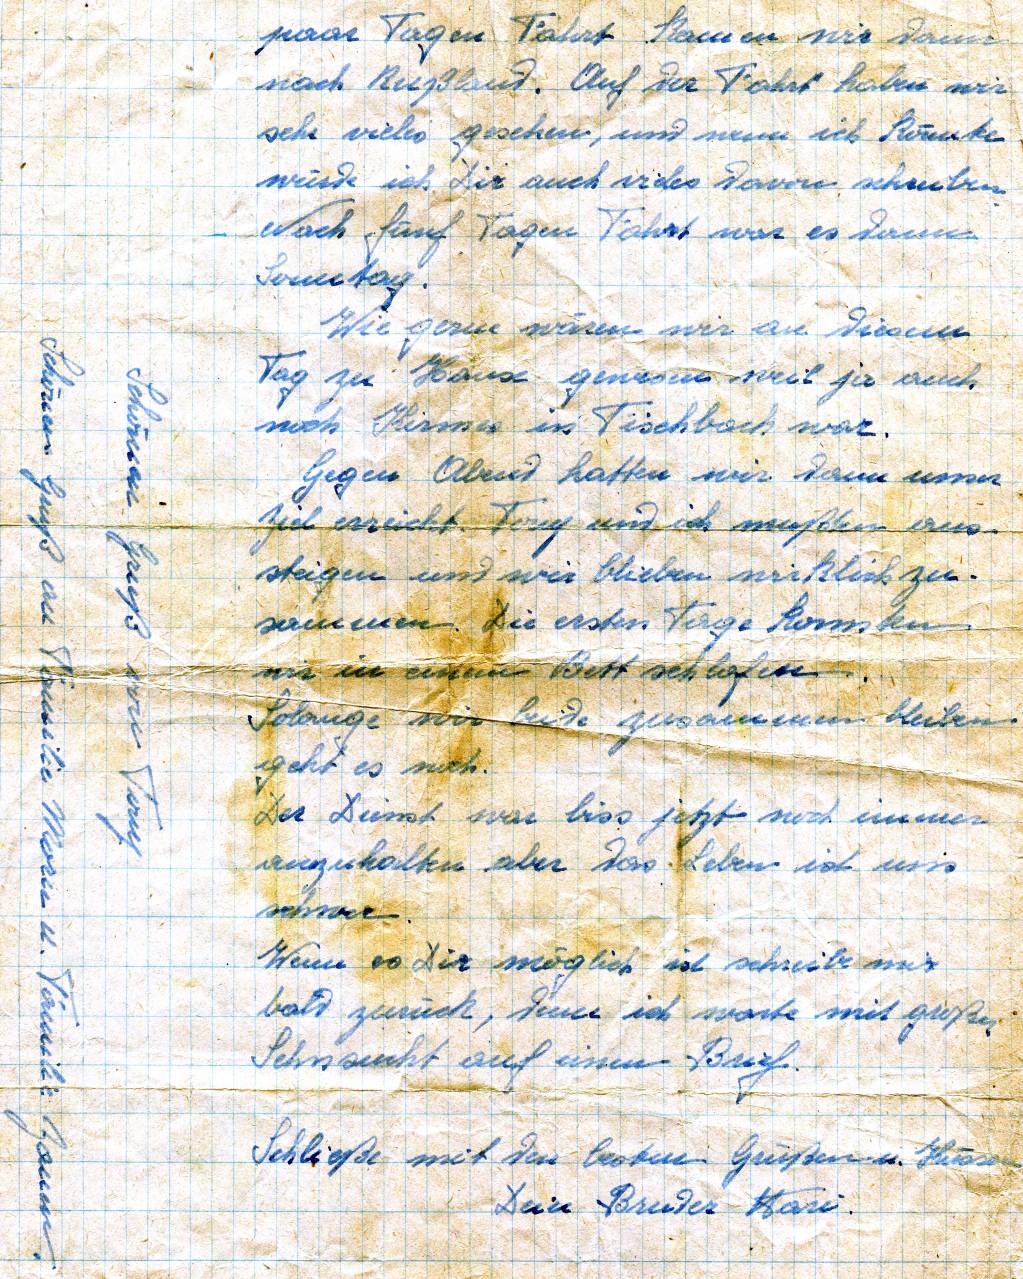 paar Tagen Fahrt kamen wir dann
nach Rußland. Auf der Fahrt haben wir
sehr vieles gesehen, und wenn ich könnte
würde ich Dir auch vieles davon schreiben.
Nach fünf Tagen Fahrt war es dann
Sonntag.
Wie gerne wären wir an diesem
Tag zu Hause gewesen weil ja auch
noch Kirmes in Fischbach war.
Gegen Abend hatten wir dann unser
Ziel erreicht. Tony und ich mußten aus-
steigen und wir blieben wirklich zu-
sammen. Die ersten Tage konnten
wir in einem Bett schlafen.
Solange wir beide zusammen bleiben
geht es noch.
Der Dienst war biss jetzt noch immer
auszuhalten aber das Leben ist uns
schwer.
Wenn es Dir möglich ist schreibe mir
bald zurück, denn ich warte mit großer
Sehnsucht auf einen Brief.
Schließe mit den besten Grüßen u. Küssen
Dein Bruder
Schönen Gruß von Tony
Schönen Gruß an Familie Morn u. Familie